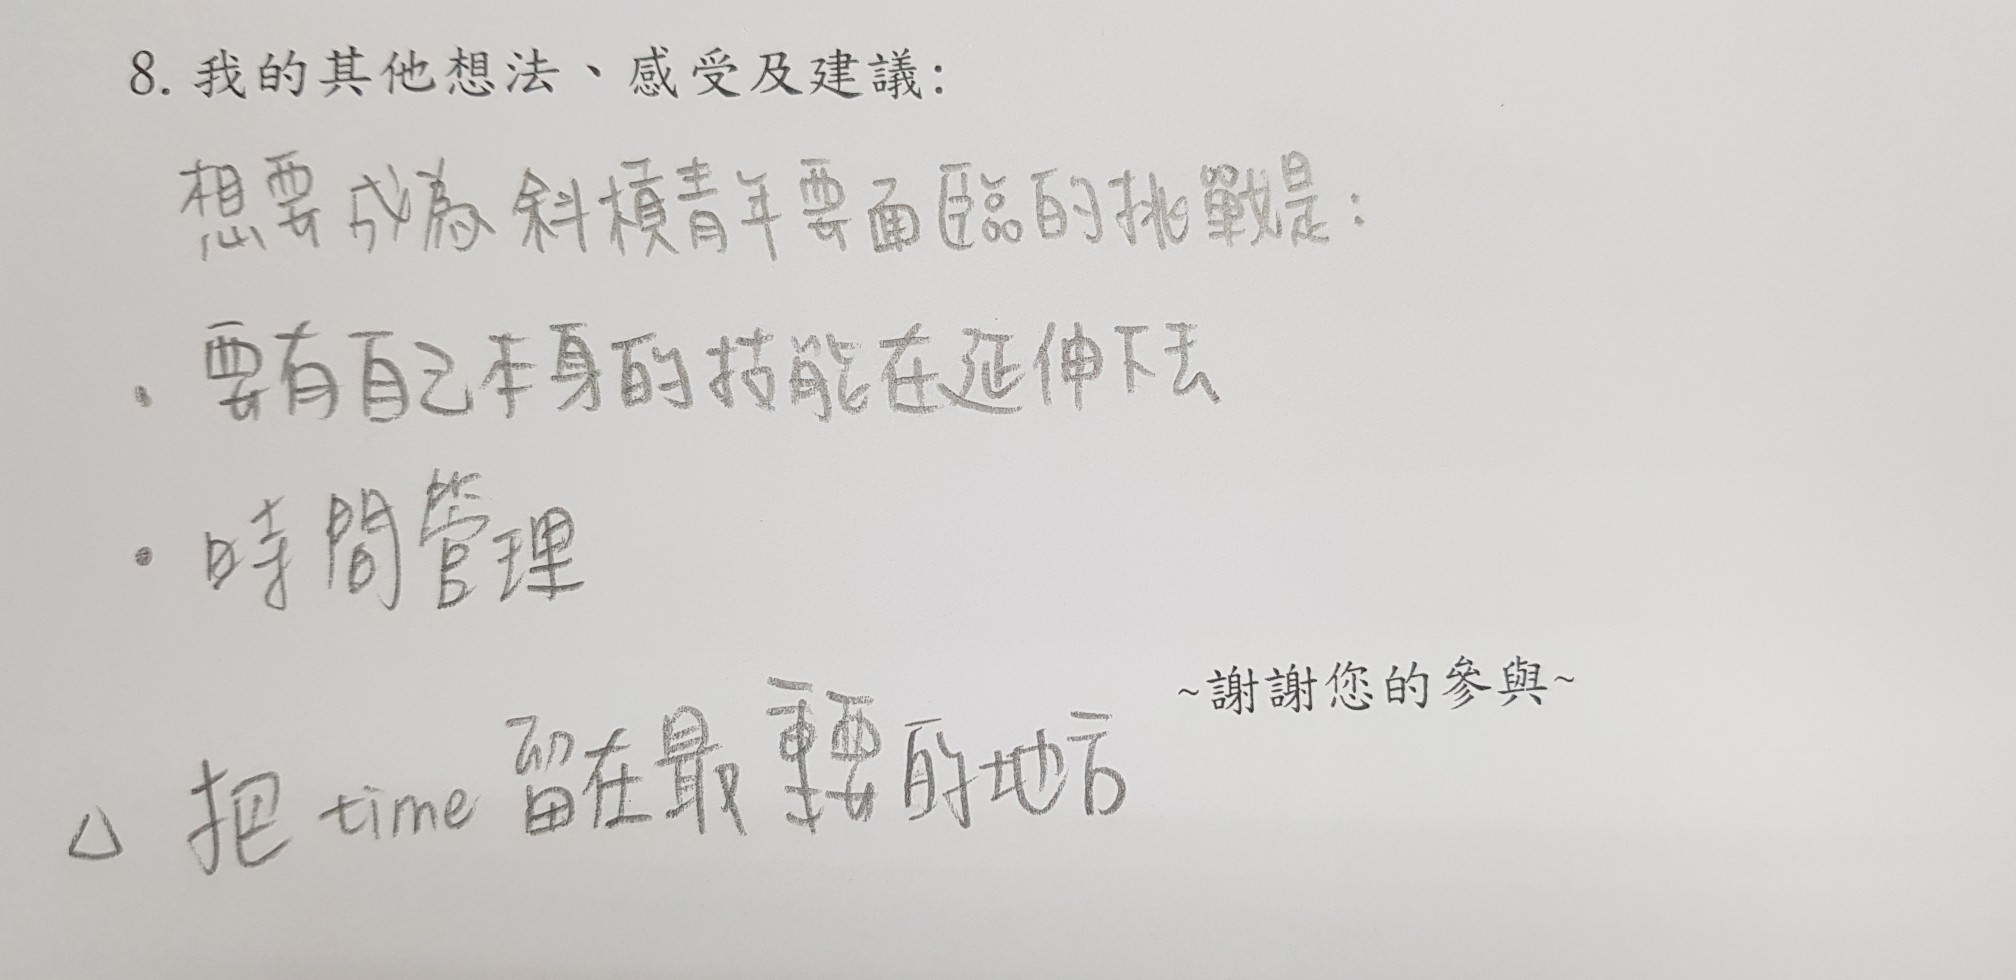 8. 我的其他想法、感受及建議:
想要成為斜槓青年要面臨的挑戰是:
• 要有自己本身的技能在延伸下去
• 時間管理
~謝謝您的參與~
△ 把 time 留在最重要的地方